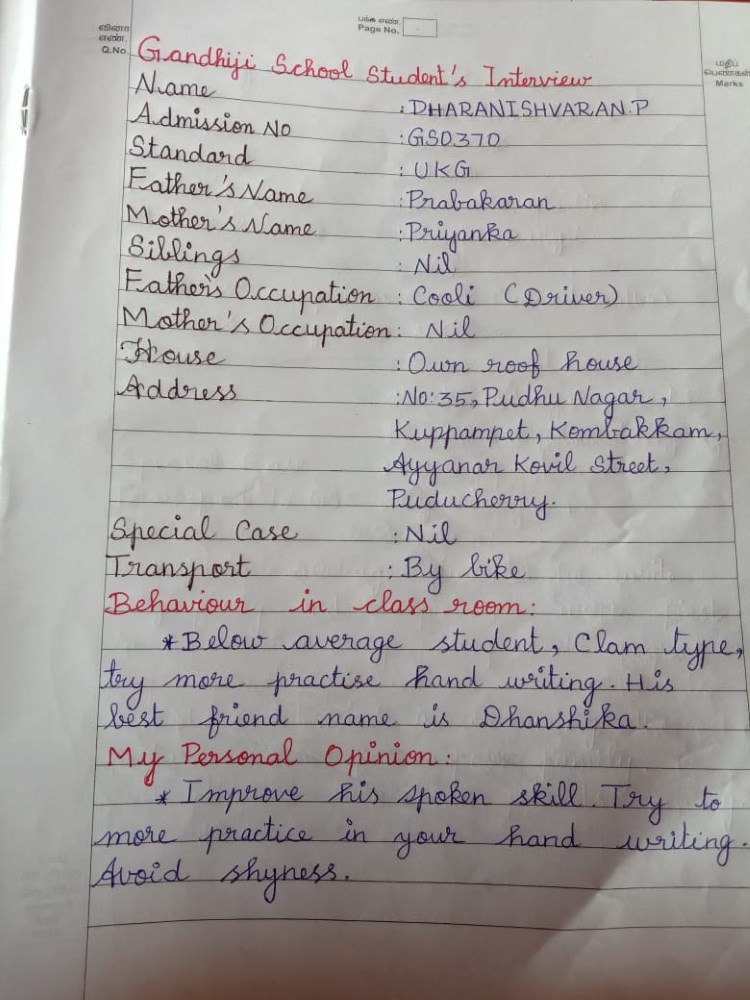 வினா எண். Q.No.
பக்க எண். Page No.
மதிப் பெண்கள் Marks
Gandhiji School Student's Interview
Name : DHARANISHVARAN.P
Admission No : GS0370
Standard : UKG
Father's Name : Prabakaran
Mother's Name : Priyanka
Siblings : Nil
Father's Occupation : Cooli (Driver)
Mother's Occupation : Nil
House : Own roof house
Address : No: 35, Pudhu Nagar,
Kuppampet, Kombakkam,
Ayyanar Kovil Street,
Puducherry.
Special Case : Nil
Transport : By bike
Behaviour in class room:
* Below average student, Clam type,
try more practise hand writing. His
best friend name is Dhanshika.
My Personal Opinion:
* Improve his spoken skill. Try to
more practice in your hand writing.
Avoid shyness.